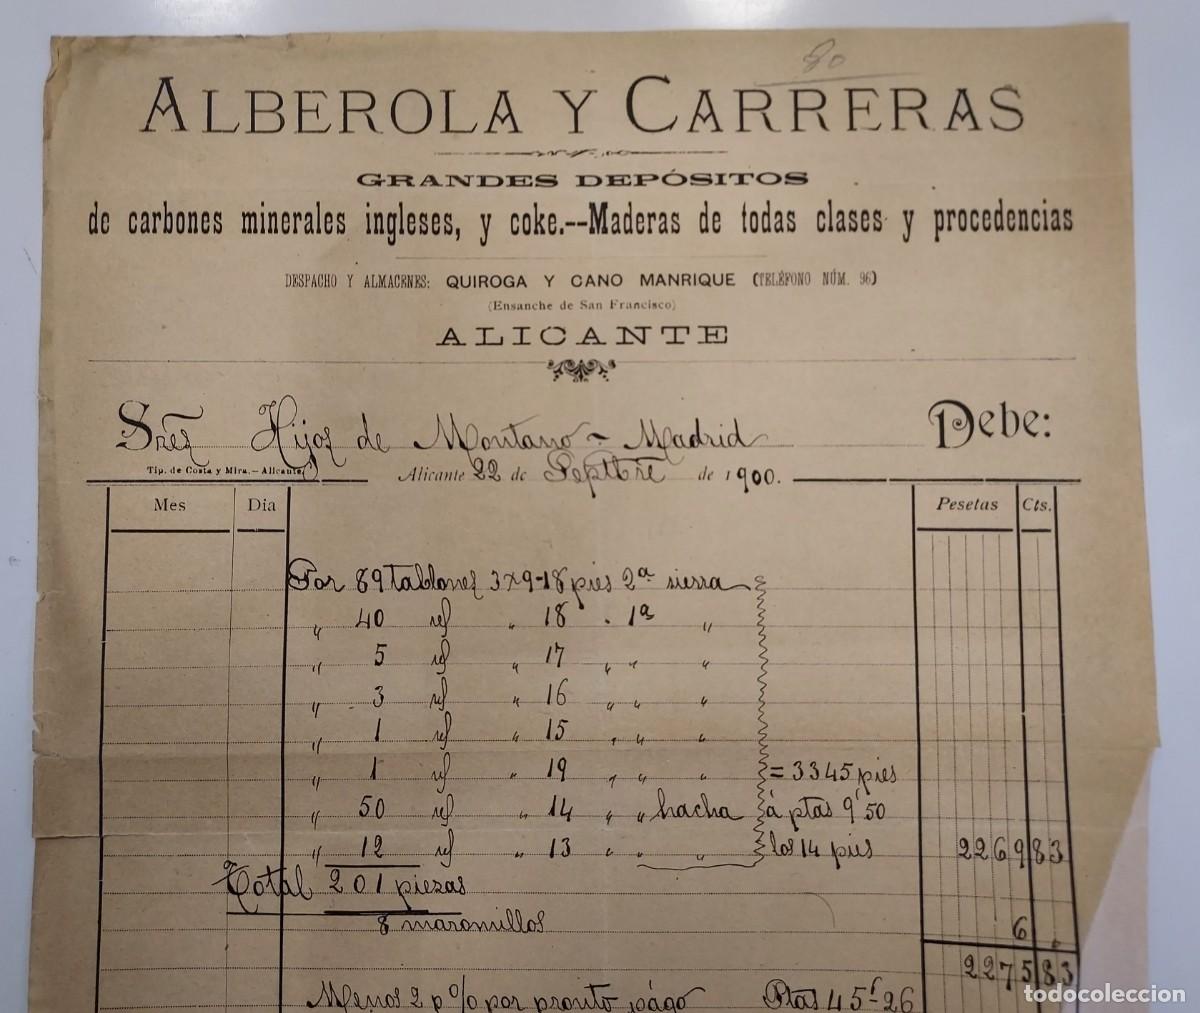 80
ALBEROLA Y CARRERAS
GRANDES DEPÓSITOS
de carbones minerales ingleses, y coke.--Maderas de todas clases y procedencias
DESPACHO Y ALMACENES: QUIROGA Y CANO MANRIQUE (TELÉFONO NÚM. 96)
(Ensanche de San Francisco)
ALICANTE
Sres Hijos de Montano - Madrid Debe:
Tip. de Costa y Mira.—Alicante
Alicante 22 de Septbre de 1900.
Mes Dia Pesetas Cts.
Por 89 tablones 3x9-18 pies 2ª sierra
" 40 id " 18 " 1ª "
" 5 id " 17 " " "
" 3 id " 16 " " "
" 1 id " 15 " " "
" 1 id " 19 " " " = 3345 pies
" 50 id " 14 " " hacha á ptas 9'50
" 12 id " 13 " " " los 14 pies 2269 83
Total 201 piezas
8 maromillos 6 "
2275 83
Menos 2 p% por pronto págo Ptas 45'-26
todocoleccion